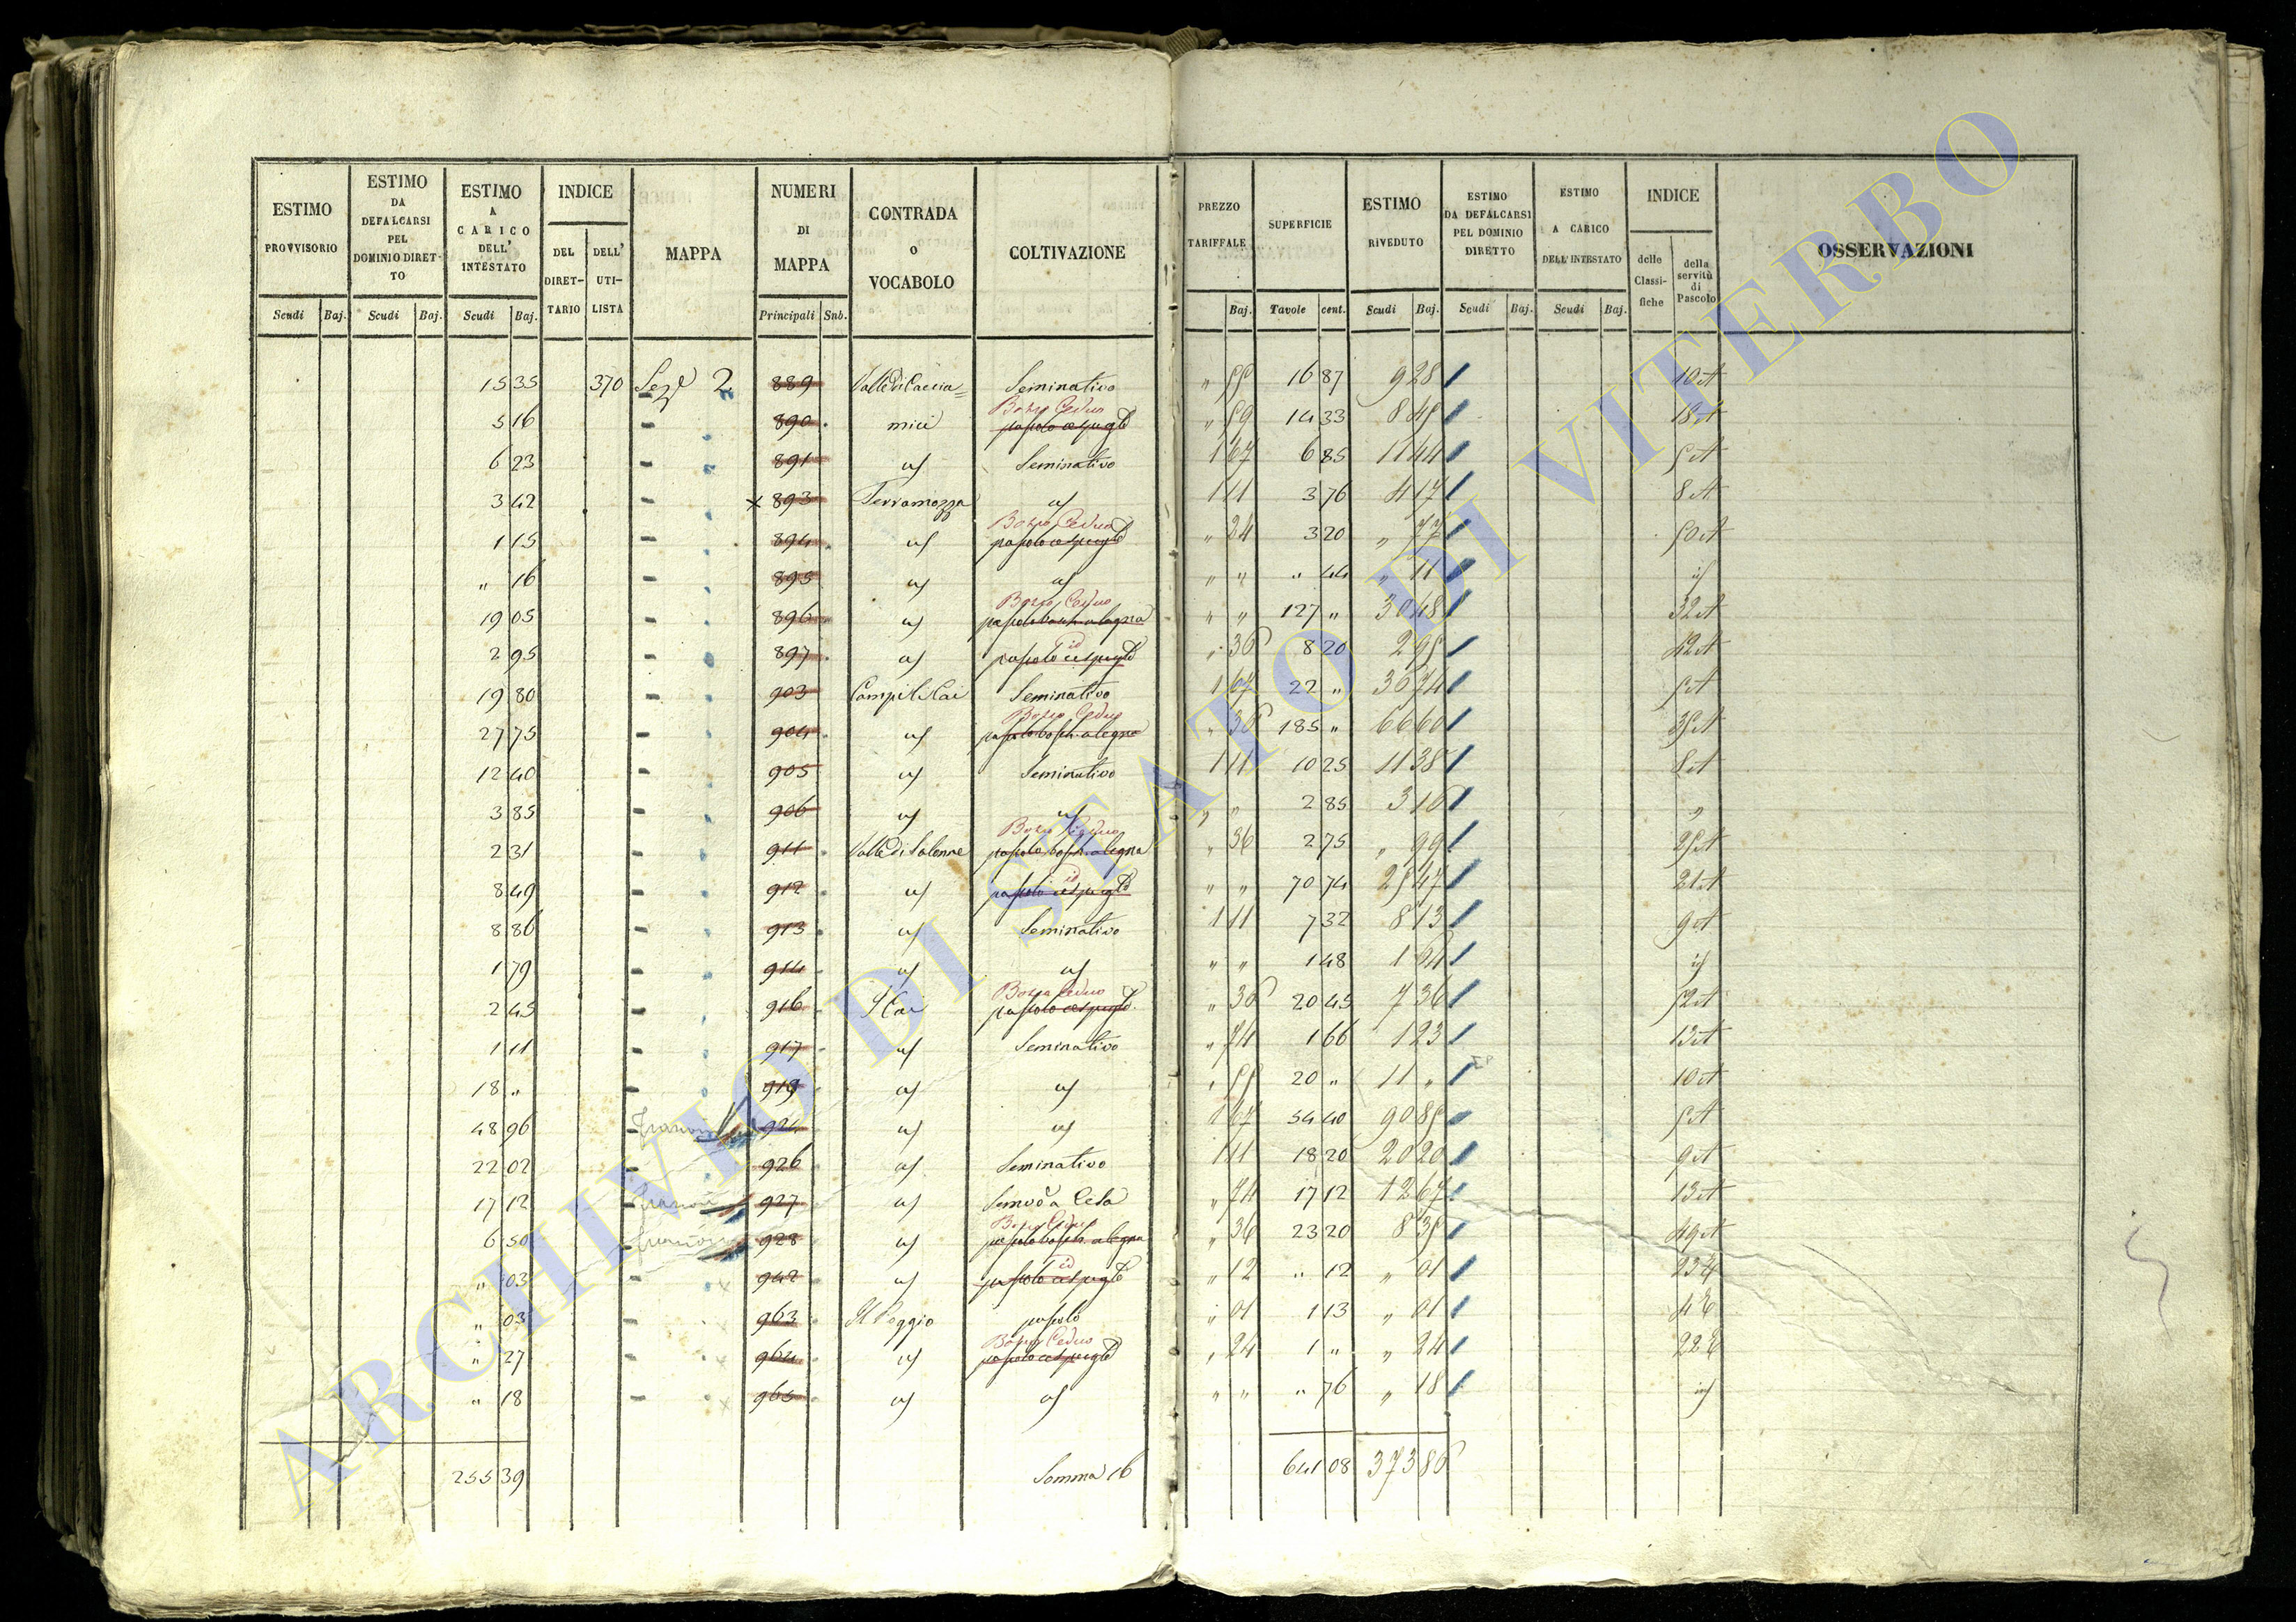 ESTIMO PROVVISORIO | ESTIMO DA DEFALCARSI PEL DOMINIO DIRETTO | ESTIMO A CARICO DELL' INTESTATO | INDICE | MAPPA | NUMERI DI MAPPA | CONTRADA O VOCABOLO | COLTIVAZIONE | PREZZO TARIFFALE | SUPERFICIE | ESTIMO RIVEDUTO | ESTIMO DA DEFALCARSI PEL DOMINIO DIRETTO | ESTIMO A CARICO DELL'INTESTATO | INDICE | OSSERVAZIONI
DEL DIRETTARIO | DELL' UTILISTA | delle Classifiche | della servitù di Pascolo
Scudi | Baj. | Scudi | Baj. | Scudi | Baj. | Principali | Sub. | Baj. | Tavole | cent. | Scudi | Baj. | Scudi | Baj. | Scudi | Baj.
15 35 370 2 889 Valle di Caccia= Seminativo " 55 16 87 9 28 10 A
Bosco Ceduo
5 16 890 mici " 59 14 33 8 45 18 A
6 23 891 Seminativo 1 67 6 85 11 44 5 A
3 42 × 893 Terramozza 1 11 3 76 4 17 8 A
Bosco Ceduo
1 15 894 " 24 3 20 " 77 50 A
" 16 895 " " " 44 " 11
Bosco Ceduo
19 05 896 " " 127 " 30 48 32 A
id
2 95 897 " 36 8 20 2 95 42 A
19 80 903 Seminativo 1 67 22 " 36 74 5 A
Bosco Ceduo
27 75 904 " 36 185 " 66 60 35 A
12 40 905 Seminativo 1 11 10 25 11 38 8 A
3 85 906 " " 2 85 3 16 "
Bosco Ceduo
2 31 911 " 36 2 75 " 99 25 A
id
8 49 912 " " 70 74 25 47 21 A
8 86 913 Seminativo 1 11 7 32 8 13 9 A
1 79 914 " " 1 48 1 64
Bosco Ceduo
2 45 916 " 36 20 45 7 36 52 A
1 11 917 Seminativo " 74 1 66 1 23 13 A
18 " 919 " 55 20 " 11 " 10 A
48 96 924 1 67 54 40 90 85 5 A
22 02 926 Seminativo 1 11 18 20 20 20 9 A
17 12 927 " 74 17 12 12 67 13 A
Bosco Ceduo
6 50 928 " 36 23 20 8 35 49 A
id
" 03 942 " 12 " 12 " 01
" 03 963 Il Poggio pascolo " 01 1 13 " 01
Bosco Ceduo
" 27 964 " 24 1 " " 24
" 18 965 " " " 76 " 18
255 39 Somma 16 641 08 373 86
ARCHIVIO DI STATO DI VITERBO